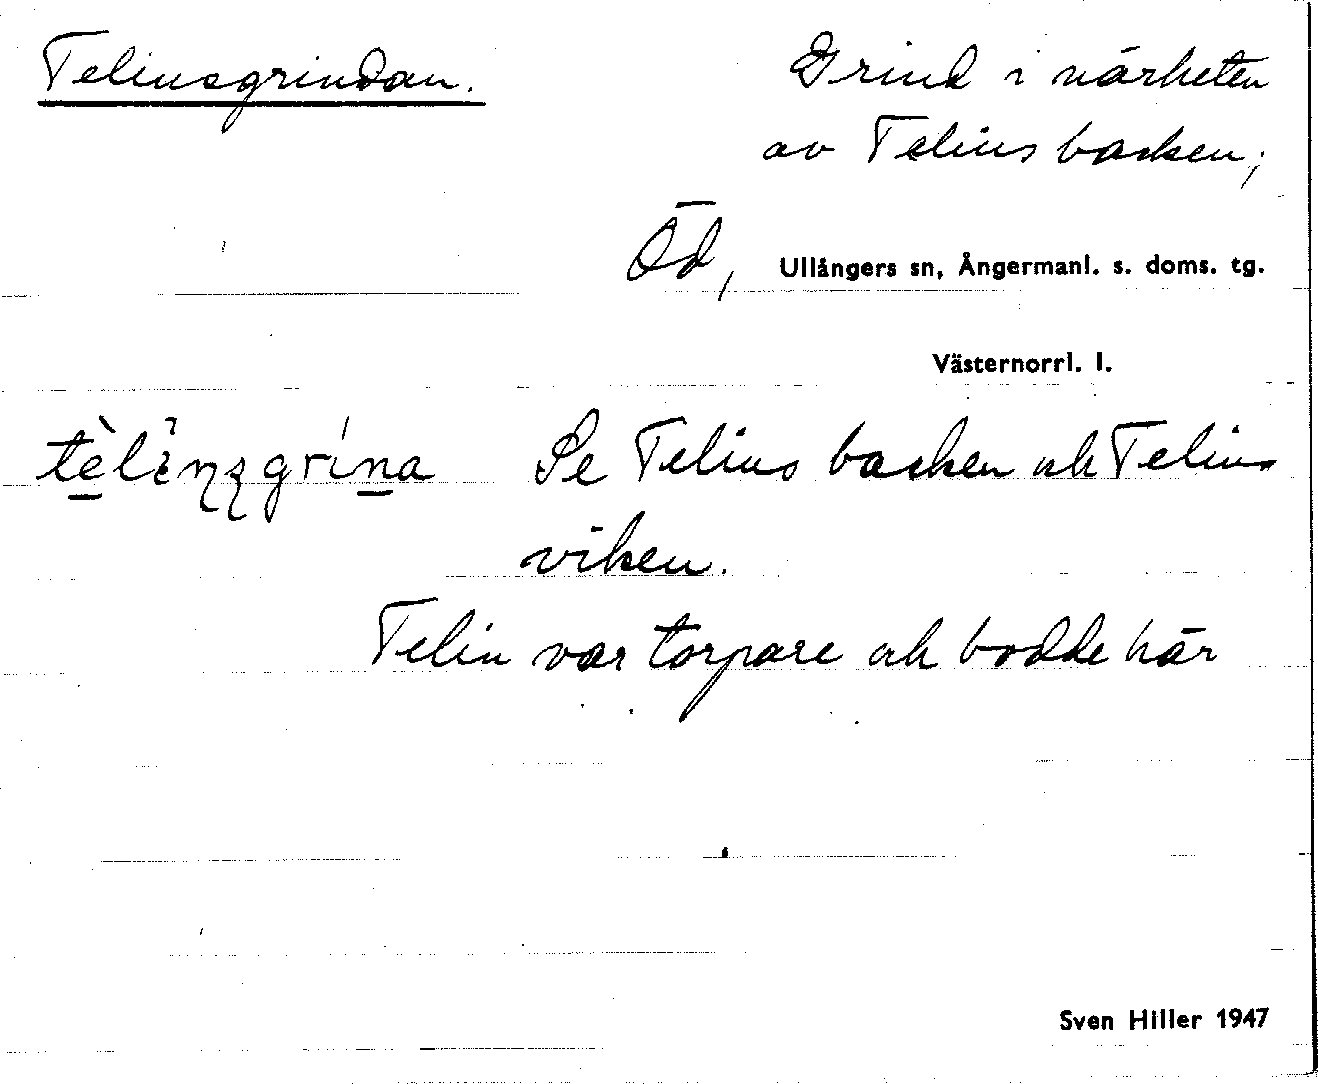 Telinsgrindan.
Grind i närheten
av Telinsbacken;
Öd, Ullångers sn, Ångermanl. s. doms. tg.
Västernorrl. l.
Se Telinsbacken och Telins
viken.
Telin var torpare och bodde här
Sven Hiller 1947